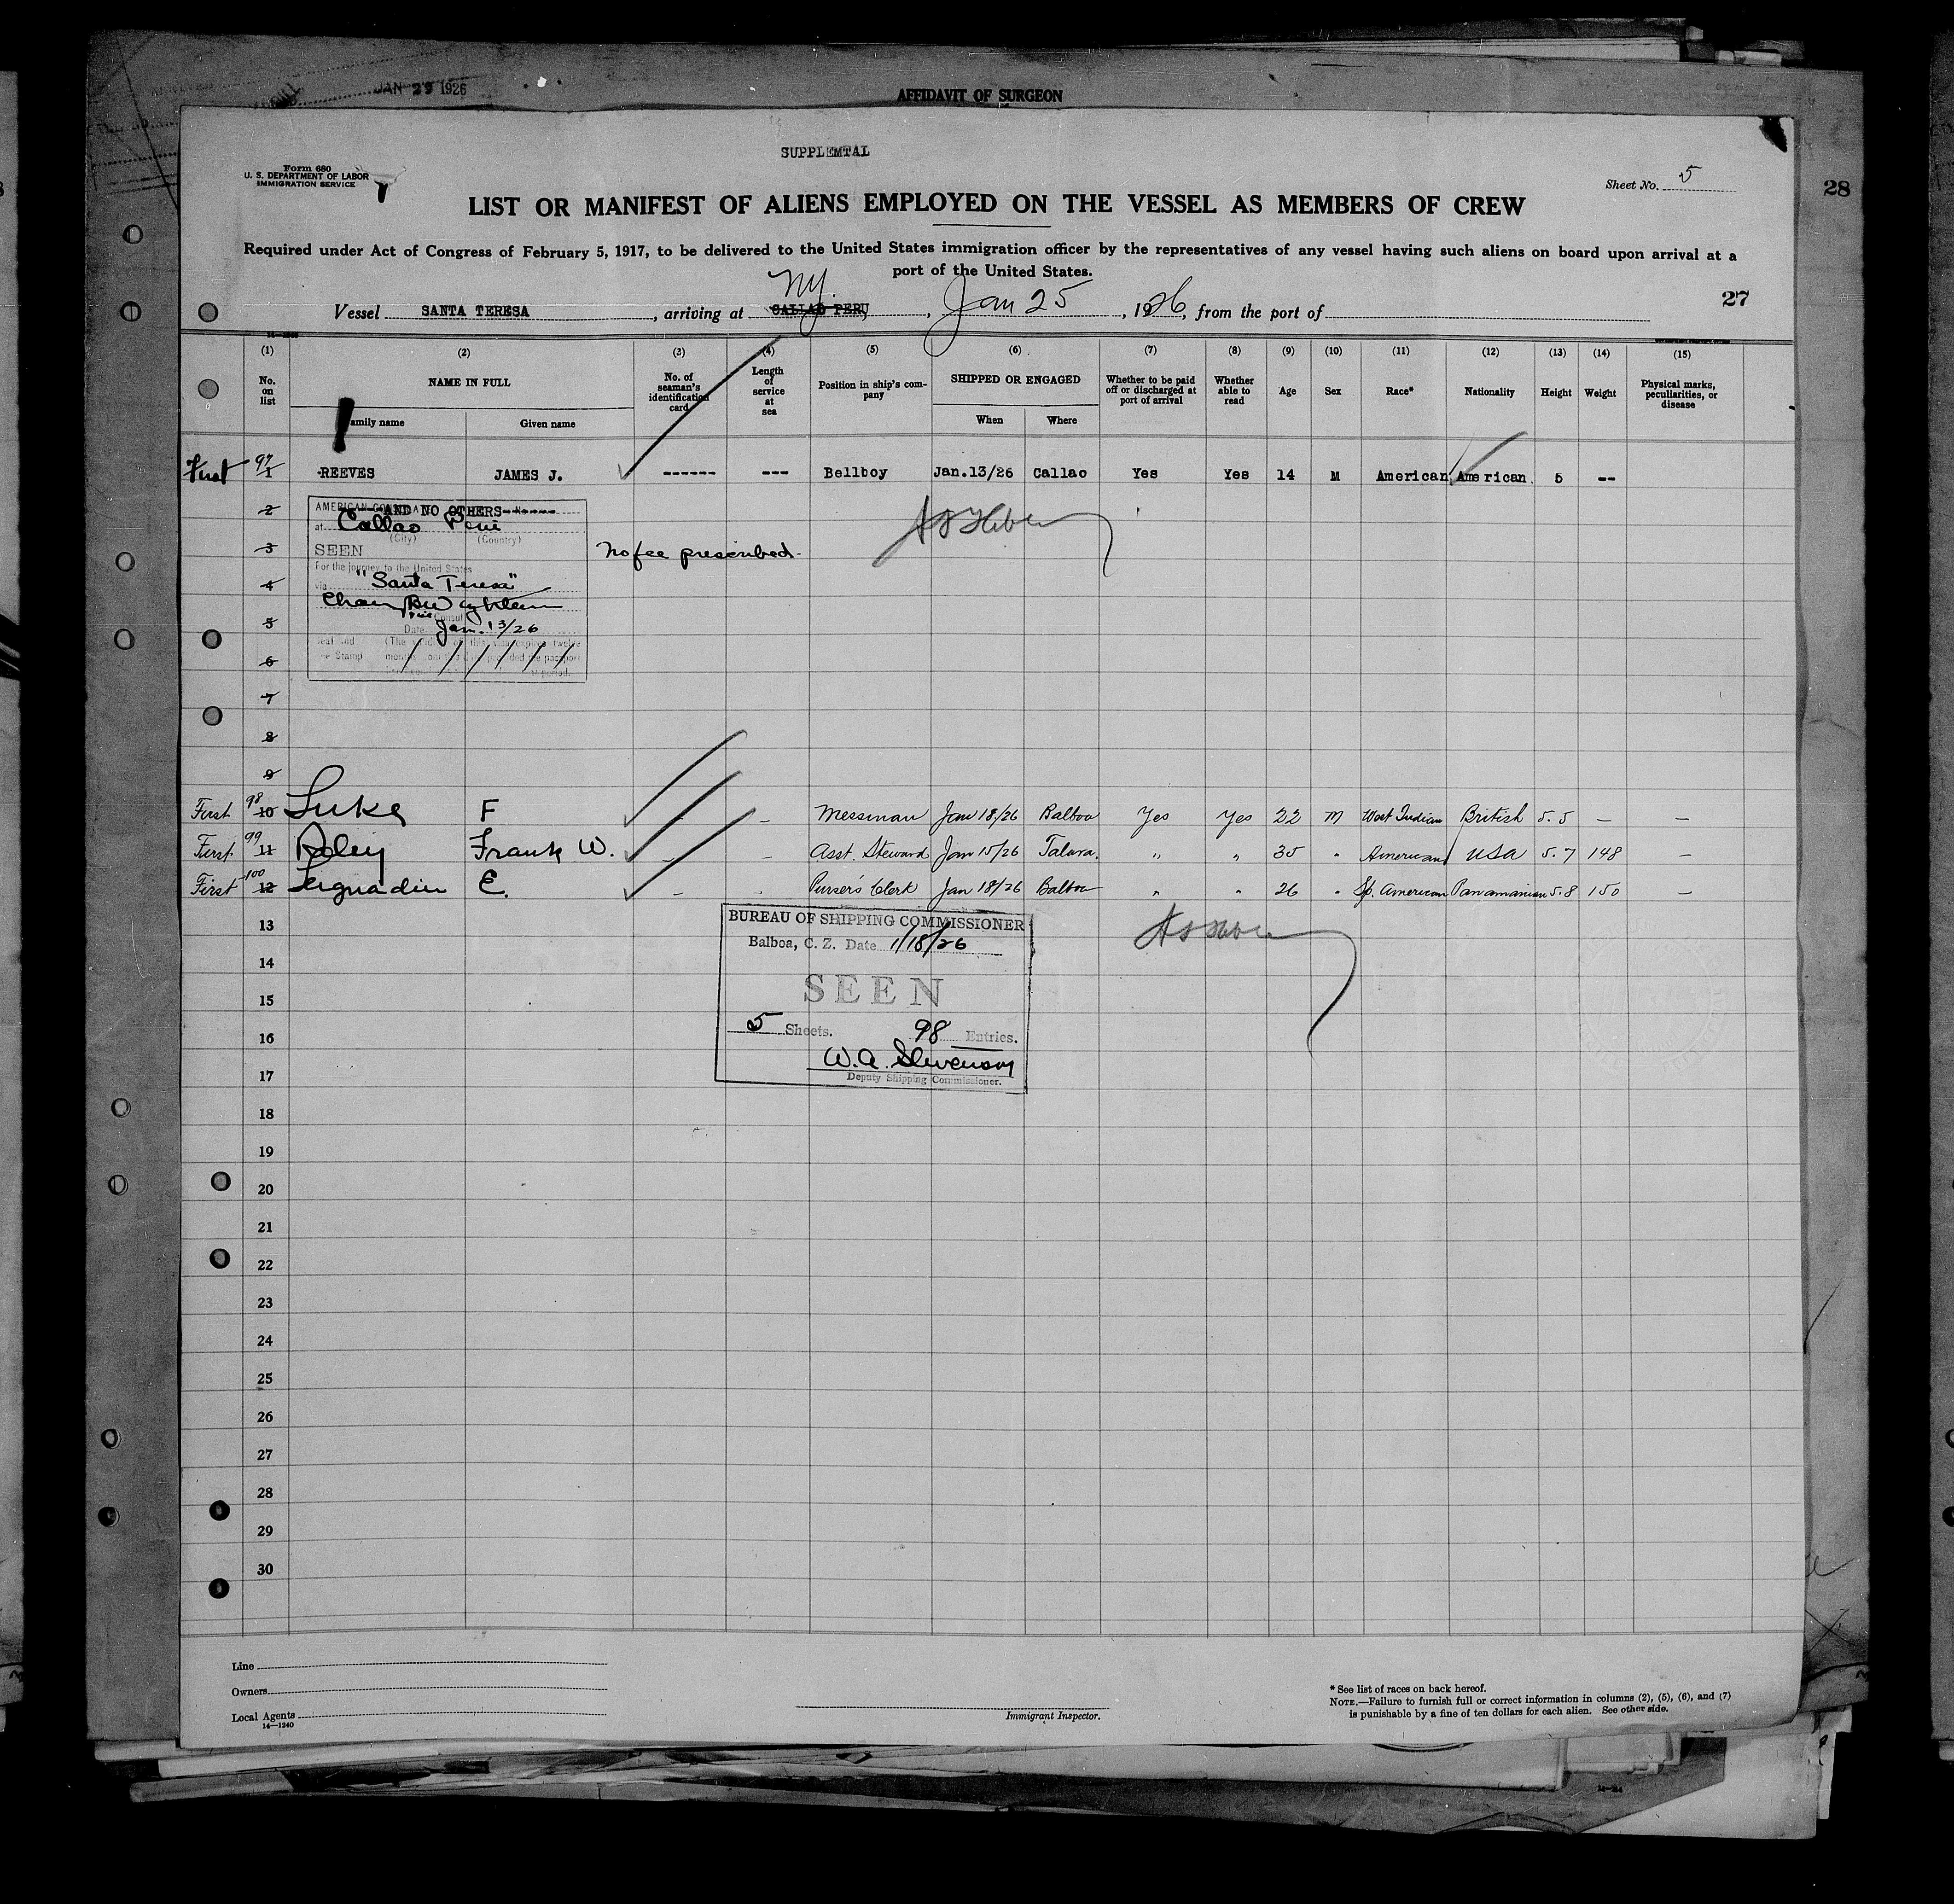 JAN 29 1926
AFFIDAVIT OF SURGEON
SUPPLEMTAL
Form 680
U. S. DEPARTMENT OF LABOR
IMMIGRATION SERVICE
Sheet No. 5
28
LIST OR MANIFEST OF ALIENS EMPLOYED ON THE VESSEL AS MEMBERS OF CREW
Required under Act of Congress of February 5, 1917, to be delivered to the United States immigration officer by the representatives of any vessel having such aliens on board upon arrival at a
port of the United States.
27
Vessel SANTA TERESA, arriving at CALLAO PERU NY., Jan 25, 1926, from the port of
(1) (2) (3) (4) (5) (6) (7) (8) (9) (10) (11) (12) (13) (14) (15)
No. on list
NAME IN FULL
Family name
Given name
No. of seaman's identification card
Length of service at sea
Position in ship's company
SHIPPED OR ENGAGED
When
Where
Whether to be paid off or discharged at port of arrival
Whether able to read
Age
Sex
Race*
Nationality
Height
Weight
Physical marks, peculiarities, or disease
First 97 1 REEVES JAMES J. ------ --- Bellboy Jan.13/26 Callao Yes Yes 14 M American American 5 --
2 AND NO OTHERS------
at Callao Peru
(City) (Country)
3 SEEN No fee prescribed-
For the journey to the United States
4 via "Santa Teresa"
5 Date Jan. 13/26
6
7
8
9
First 98 10 Luke F - Messman Jan 18/26 Balboa Yes Yes 22 M West Indian British 5.5 — —
First 99 11 Roley Frank W. - - Asst. Steward Jan 15/26 Talara. " " 35 " American USA 5.7 148 —
First 100 12 E. - - Purser's Clerk Jan 18/26 Balboa " " 26 " Sp. American Panamanian 5.8 150 —
13
BUREAU OF SHIPPING COMMISSIONER
Balboa, C. Z. Date 1/18/26
14
SEEN
15
5 Sheets. 98 Entries.
16
W. A. Stevenson
Deputy Shipping Commissioner.
17
18
19
20
21
22
23
24
25
26
27
28
29
30
Line
Owners
Local Agents
14—1240
Immigrant Inspector.
* See list of races on back hereof.
NOTE.—Failure to furnish full or correct information in columns (2), (5), (6), and (7)
is punishable by a fine of ten dollars for each alien. See other side.